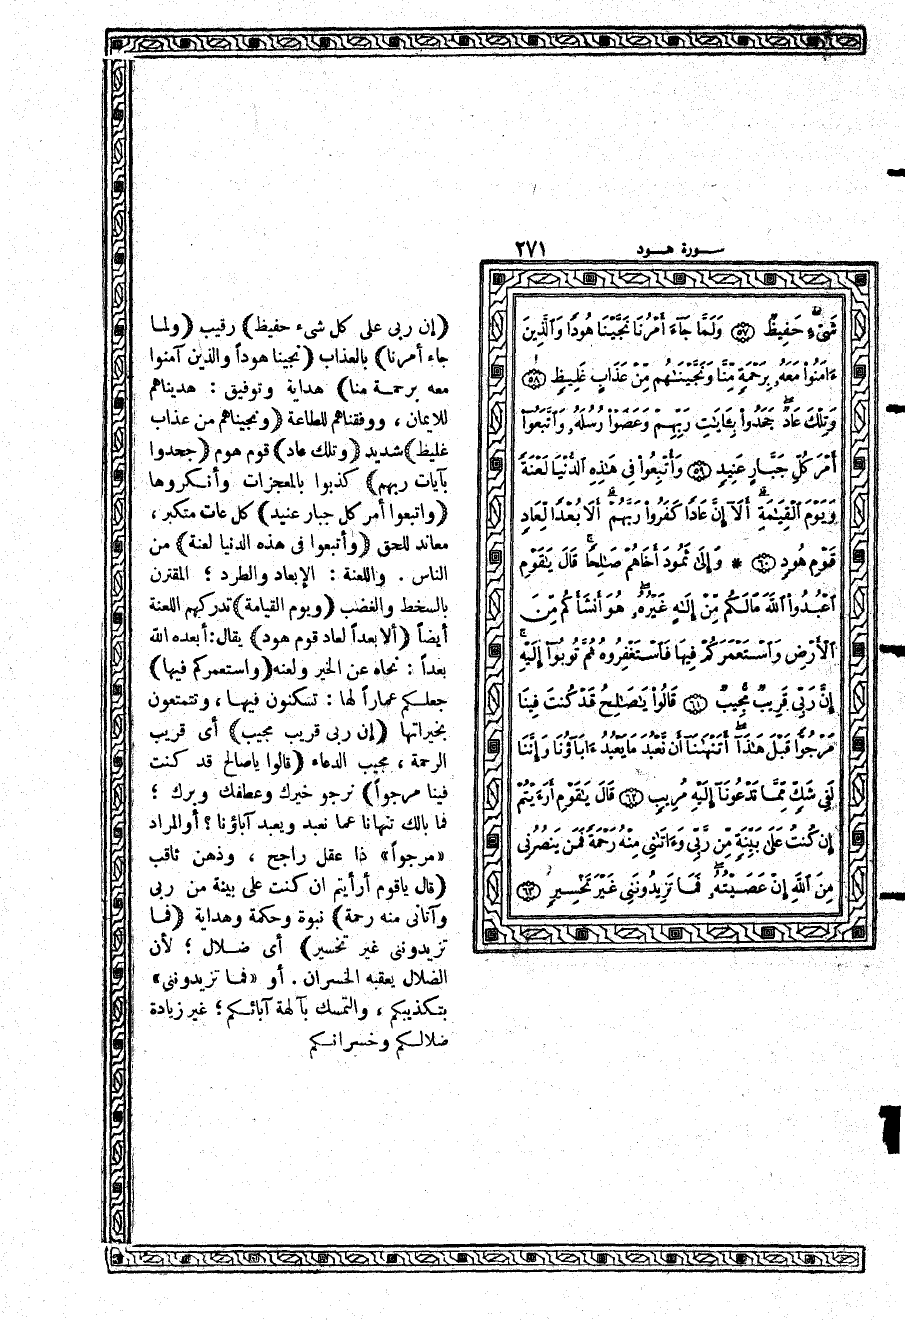 سورة هود ٢٧١
شَىْءٍ حَفِيظٌ ٥٧ وَلَمَّا جَآءَ أَمْرُنَا نَجَّيْنَا هُودًا وَٱلَّذِينَ
ءَامَنُوا۟ مَعَهُۥ بِرَحْمَةٍ مِّنَّا وَنَجَّيْنَـٰهُم مِّنْ عَذَابٍ غَلِيظٍ ٥٨
وَتِلْكَ عَادٌ جَحَدُوا۟ بِـَٔايَـٰتِ رَبِّهِمْ وَعَصَوْا۟ رُسُلَهُۥ وَٱتَّبَعُوٓا۟
أَمْرَ كُلِّ جَبَّارٍ عَنِيدٍ ٥٩ وَأُتْبِعُوا۟ فِى هَـٰذِهِ ٱلدُّنْيَا لَعْنَةً
وَيَوْمَ ٱلْقِيَـٰمَةِ ۗ أَلَآ إِنَّ عَادًا كَفَرُوا۟ رَبَّهُمْ ۗ أَلَا بُعْدًا لِّعَادٍ
قَوْمِ هُودٍ ٦٠ * وَإِلَىٰ ثَمُودَ أَخَاهُمْ صَـٰلِحًا ۚ قَالَ يَـٰقَوْمِ
ٱعْبُدُوا۟ ٱللَّهَ مَا لَكُم مِّنْ إِلَـٰهٍ غَيْرُهُۥ ۖ هُوَ أَنشَأَكُم مِّنَ
ٱلْأَرْضِ وَٱسْتَعْمَرَكُمْ فِيهَا فَٱسْتَغْفِرُوهُ ثُمَّ تُوبُوٓا۟ إِلَيْهِ ۚ
إِنَّ رَبِّى قَرِيبٌ مُّجِيبٌ ٦١ قَالُوا۟ يَـٰصَـٰلِحُ قَدْ كُنتَ فِينَا
مَرْجُوًّا قَبْلَ هَـٰذَآ ۖ أَتَنْهَىٰنَآ أَن نَّعْبُدَ مَا يَعْبُدُ ءَابَآؤُنَا وَإِنَّنَا
لَفِى شَكٍّ مِّمَّا تَدْعُونَآ إِلَيْهِ مُرِيبٍ ٦٢ قَالَ يَـٰقَوْمِ أَرَءَيْتُمْ
إِن كُنتُ عَلَىٰ بَيِّنَةٍ مِّن رَّبِّى وَءَاتَىٰنِى مِنْهُ رَحْمَةً فَمَن يَنصُرُنِى
مِنَ ٱللَّهِ إِنْ عَصَيْتُهُۥ ۖ فَمَا تَزِيدُونَنِى غَيْرَ تَخْسِيرٍ ٦٣
(إن ربى على كل شىء حفيظ) رقيب (ولما
جاء أمرنا) بالعذاب (نجينا هوداً والذين آمنوا
معه برحمة منا) هداية وتوفيق : هديناهم
للايمان ، ووفقناهم للطاعة (ونجيناهم من عذاب
غليظ) شديد (وتلك عاد) قوم هود (جحدوا
بآيات ربهم) كذبوا بالمعجزات وأنكروها
(واتبعوا أمر كل جبار عنيد) كل عات متكبر ،
معاند للحق (وأتبعوا فى هذه الدنيا لعنة) من
الناس . واللعنة : الإبعاد والطرد ؛ المقترن
بالسخط والغضب (ويوم القيامة) تدركهم اللعنة
أيضاً (ألا بعداً لعاد قوم هود) يقال: أبعده الله
بعداً : نحاه عن الخير ولعنه (واستعمركم فيها)
جعلكم عماراً لها : تسكنون فيها ، وتتمتعون
بخيراتها (إن ربى قريب مجيب) أى قريب
الرحمة ، مجيب الدعاء (قالوا ياصالح قد كنت
فينا مرجواً) نرجو خيرك وعطفك وبرك ؛
فما بالك تنهانا عما نعبد ويعبد آباؤنا ؟ أو المراد
«مرجواً» ذا عقل راجح ، وذهن ثاقب
(قال ياقوم أرأيتم ان كنت على بينة من ربى
وآتانى منه رحمة) نبوة وحكمة وهداية (فما
تزيدوننى غير تخسير) أى ضلال ؛ لأن
الضلال يعقبه الخسران . أو «فما تزيدوننى»
بتكذيبكم ، والتمسك بآلهة آبائكم ؛ غير زيادة
ضلالكم وخسرانكم